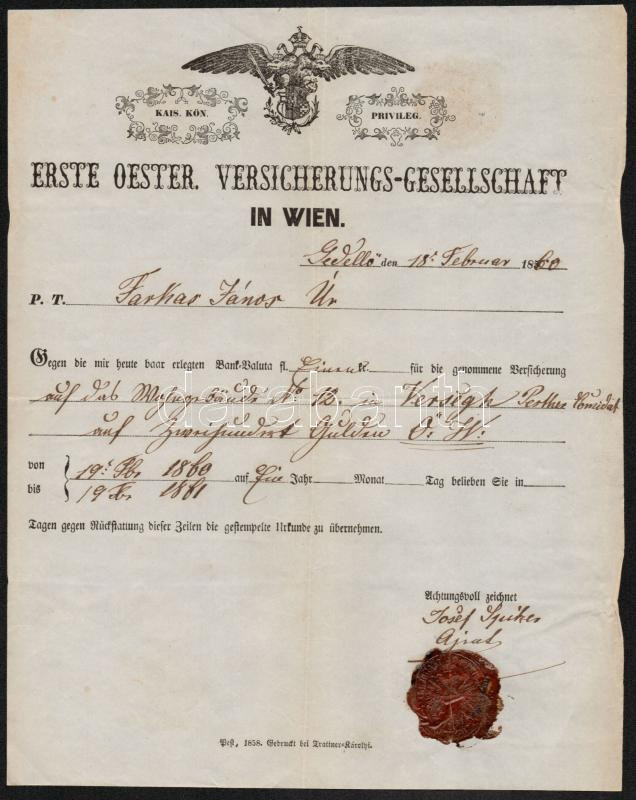 KAIS. KÖN. PRIVILEG.
ERSTE OESTER. VERSICHERUNGS-GESELLSCHAFT
IN WIEN.
Gedellö den 18t Februar 1860
P. T. Farkas János Úr
Gegen die mir heute baar erlegten Bank-Valuta fl. für die genommene Versicherung
auf das Wohngebäude No in Versegh Pesther Comidat
auf Zweihundert Gulden Ö: W:
von 19t Fbr 1860 auf Ein Jahr Monat Tag belieben Sie in
bis 19 Fbr 1861
Tagen gegen Rückstattung dieser Zeilen die gestempelte Urkunde zu übernehmen.
Achtungsvoll zeichnet
Josef Spitzer
Agent
darabanth
Pest, 1858. Gedruckt bei Trattner-Károlyi.